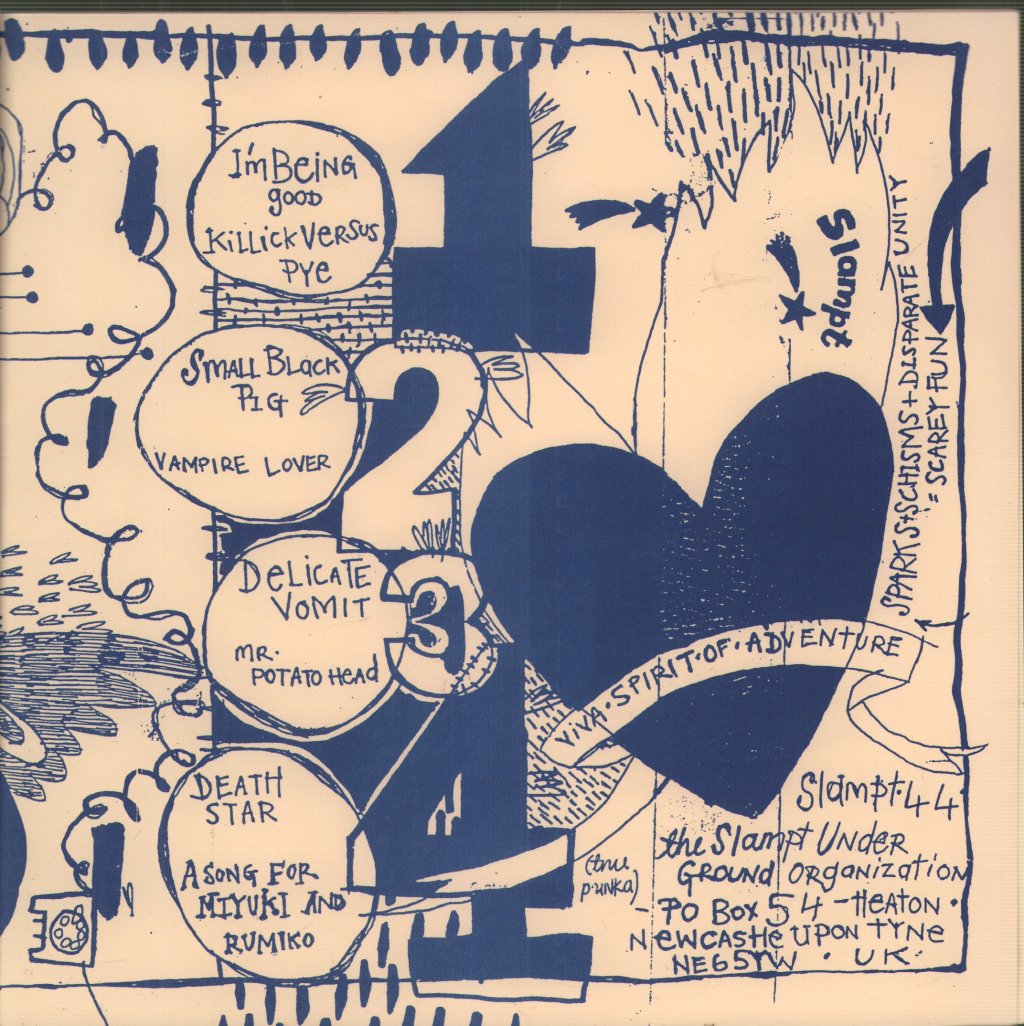 I'm BeiNg
gooD
KillickVersus
Pye
1
Small Black
Pig
Vampire Lover
2
Delicate
Vomit
Mr.
Potato Head
3
Death
Star
A Song For
Miyuki And
Rumiko
4
Slampt
SPARKS+SCHISMS+DISPARATE UNITY
= SCAREY FUN
VIVA·SPIRIT·OF·ADVENTURE
(true
punka)
Slampt·44
the Slampt Under
Ground Organization
- PO Box 54 - Heaton·
Newcastle upon Tyne
NE65YW · UK·